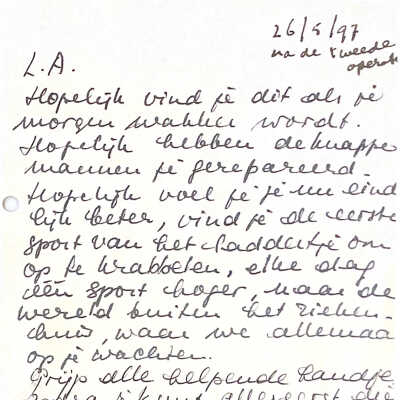 26/5/97
na de tweede
operat
L.A.
Hopelijk vind je dit als je
morgen wakker wordt.
Hopelijk hebben de knappe
mannen je gerepareerd.
Hopelijk voel je je nu eind
lijk beter, vind je de eerste
sport van het laddertje om
op te krabbelen, elke dag
één sport hoger, naar de
wereld buiten het zieken-
huis, waar we allemaa
op je wachten.
Grijp alle helpende handje